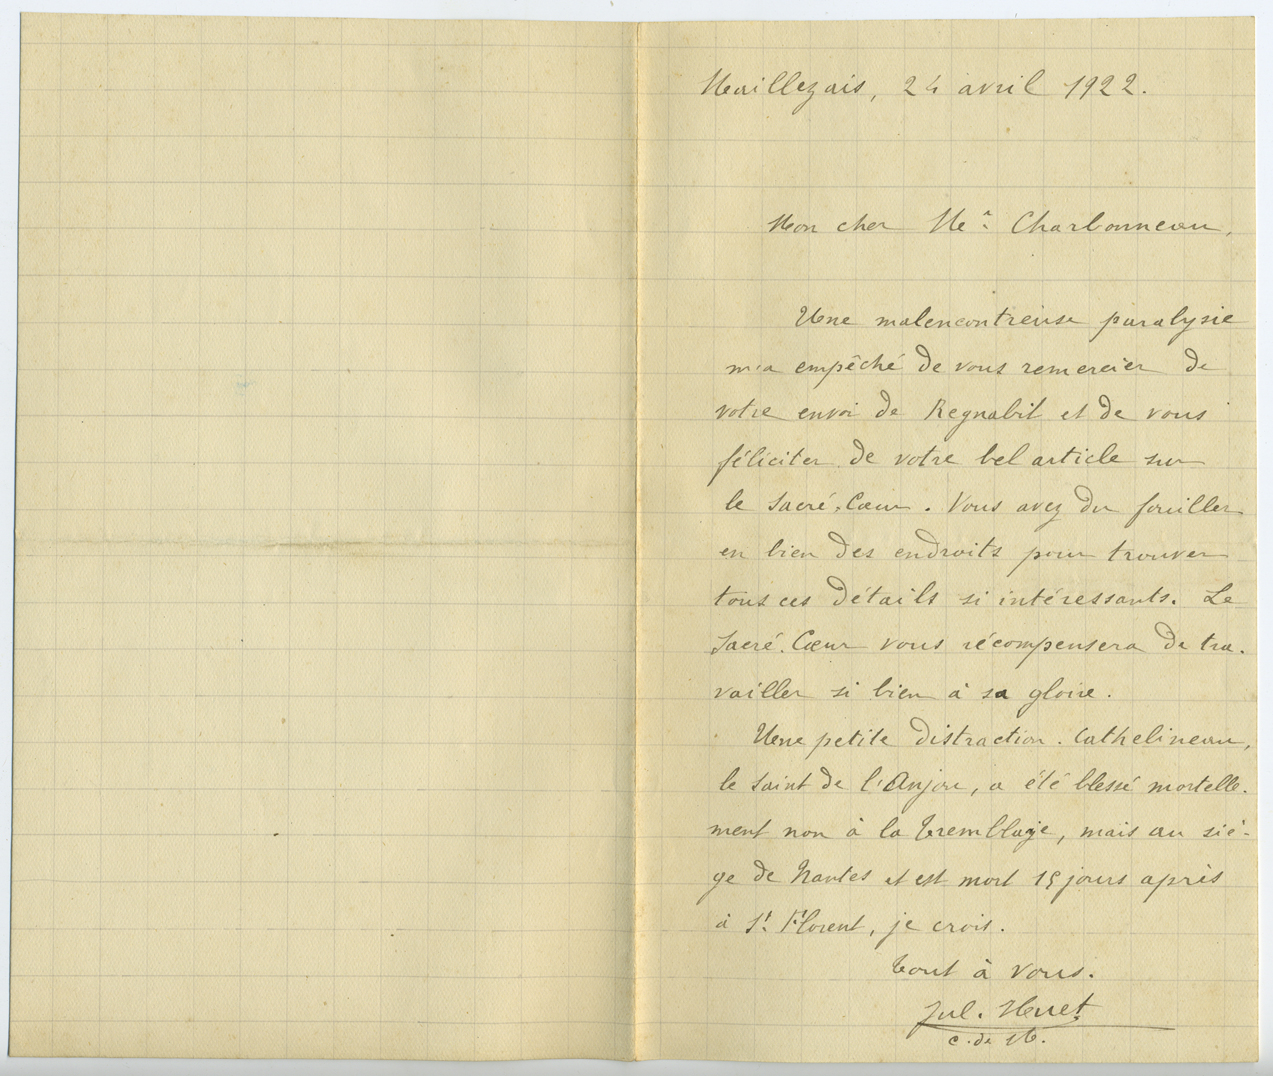 Maillezais, 24 avril 1922.
Mon cher Mr. Charbonneau,
Une malencontreuse paralysie
m'a empêché de vous remercier de
votre envoi de Regnabit et de vous
féliciter de votre bel article sur
le Sacré-Cœur. Vous avez du fouiller
en bien des endroits pour trouver
tous ces détails si intéressants. Le
Sacré-Cœur vous récompensera de tra-
vailler si bien à sa gloire.
Une petite distraction. Cathelineau,
le Saint de l'Anjou, a été blessé mortelle-
ment non à la Tremblaye, mais au siè-
ge de Nantes et est mort 15 jours après
à St. Florent, je crois.
Tout à vous.
Jul. Huet
c. de M.